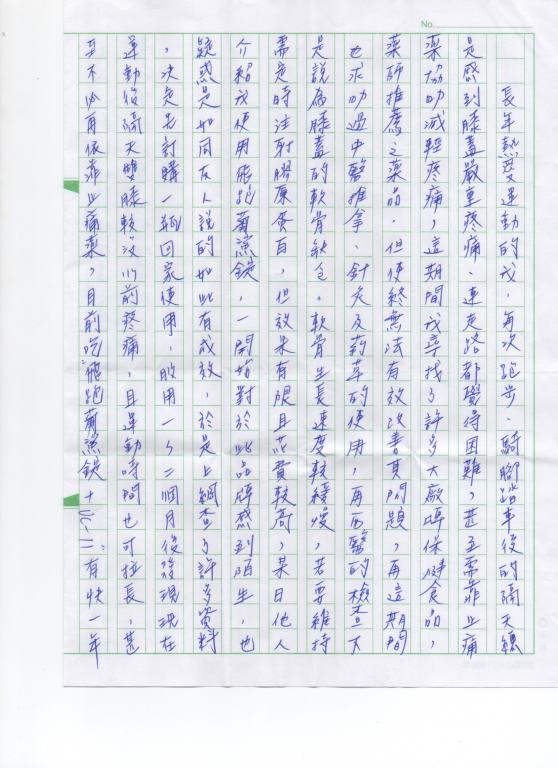 No.
長年熱愛運動的我，每次跑步、騎腳踏車後的隔天總
是感到膝蓋嚴重疼痛、連走路都覺得困難，甚至需靠止痛
藥協助減輕疼痛，這期間我尋找了許多大廠牌保健食品，
藥師推薦之藥品，但使終無法有效改善其問題，再這期間
也求助過中醫推拿、針灸及葯草的使用，再西醫的檢查下
是說為膝蓋的軟骨缺乏。軟骨生長速度較緩慢，若要維持
需定時注射膠原蛋白，但效果有限且花費較高，某日他人
介紹我使用飛跑葡鯊錠，一開始對於此品牌感到陌生，也
疑惑是如同友人說的如此有成效，於是上網查了許多資料
，決定先訂購一瓶回家使用，服用一～二個月後發現現在
運動後隔天雙膝較沒以前疼痛，且運動時間也可拉長，甚
至不必再依靠止痛藥，目前吃飛跑葡鯊錠+UC-II有快一年